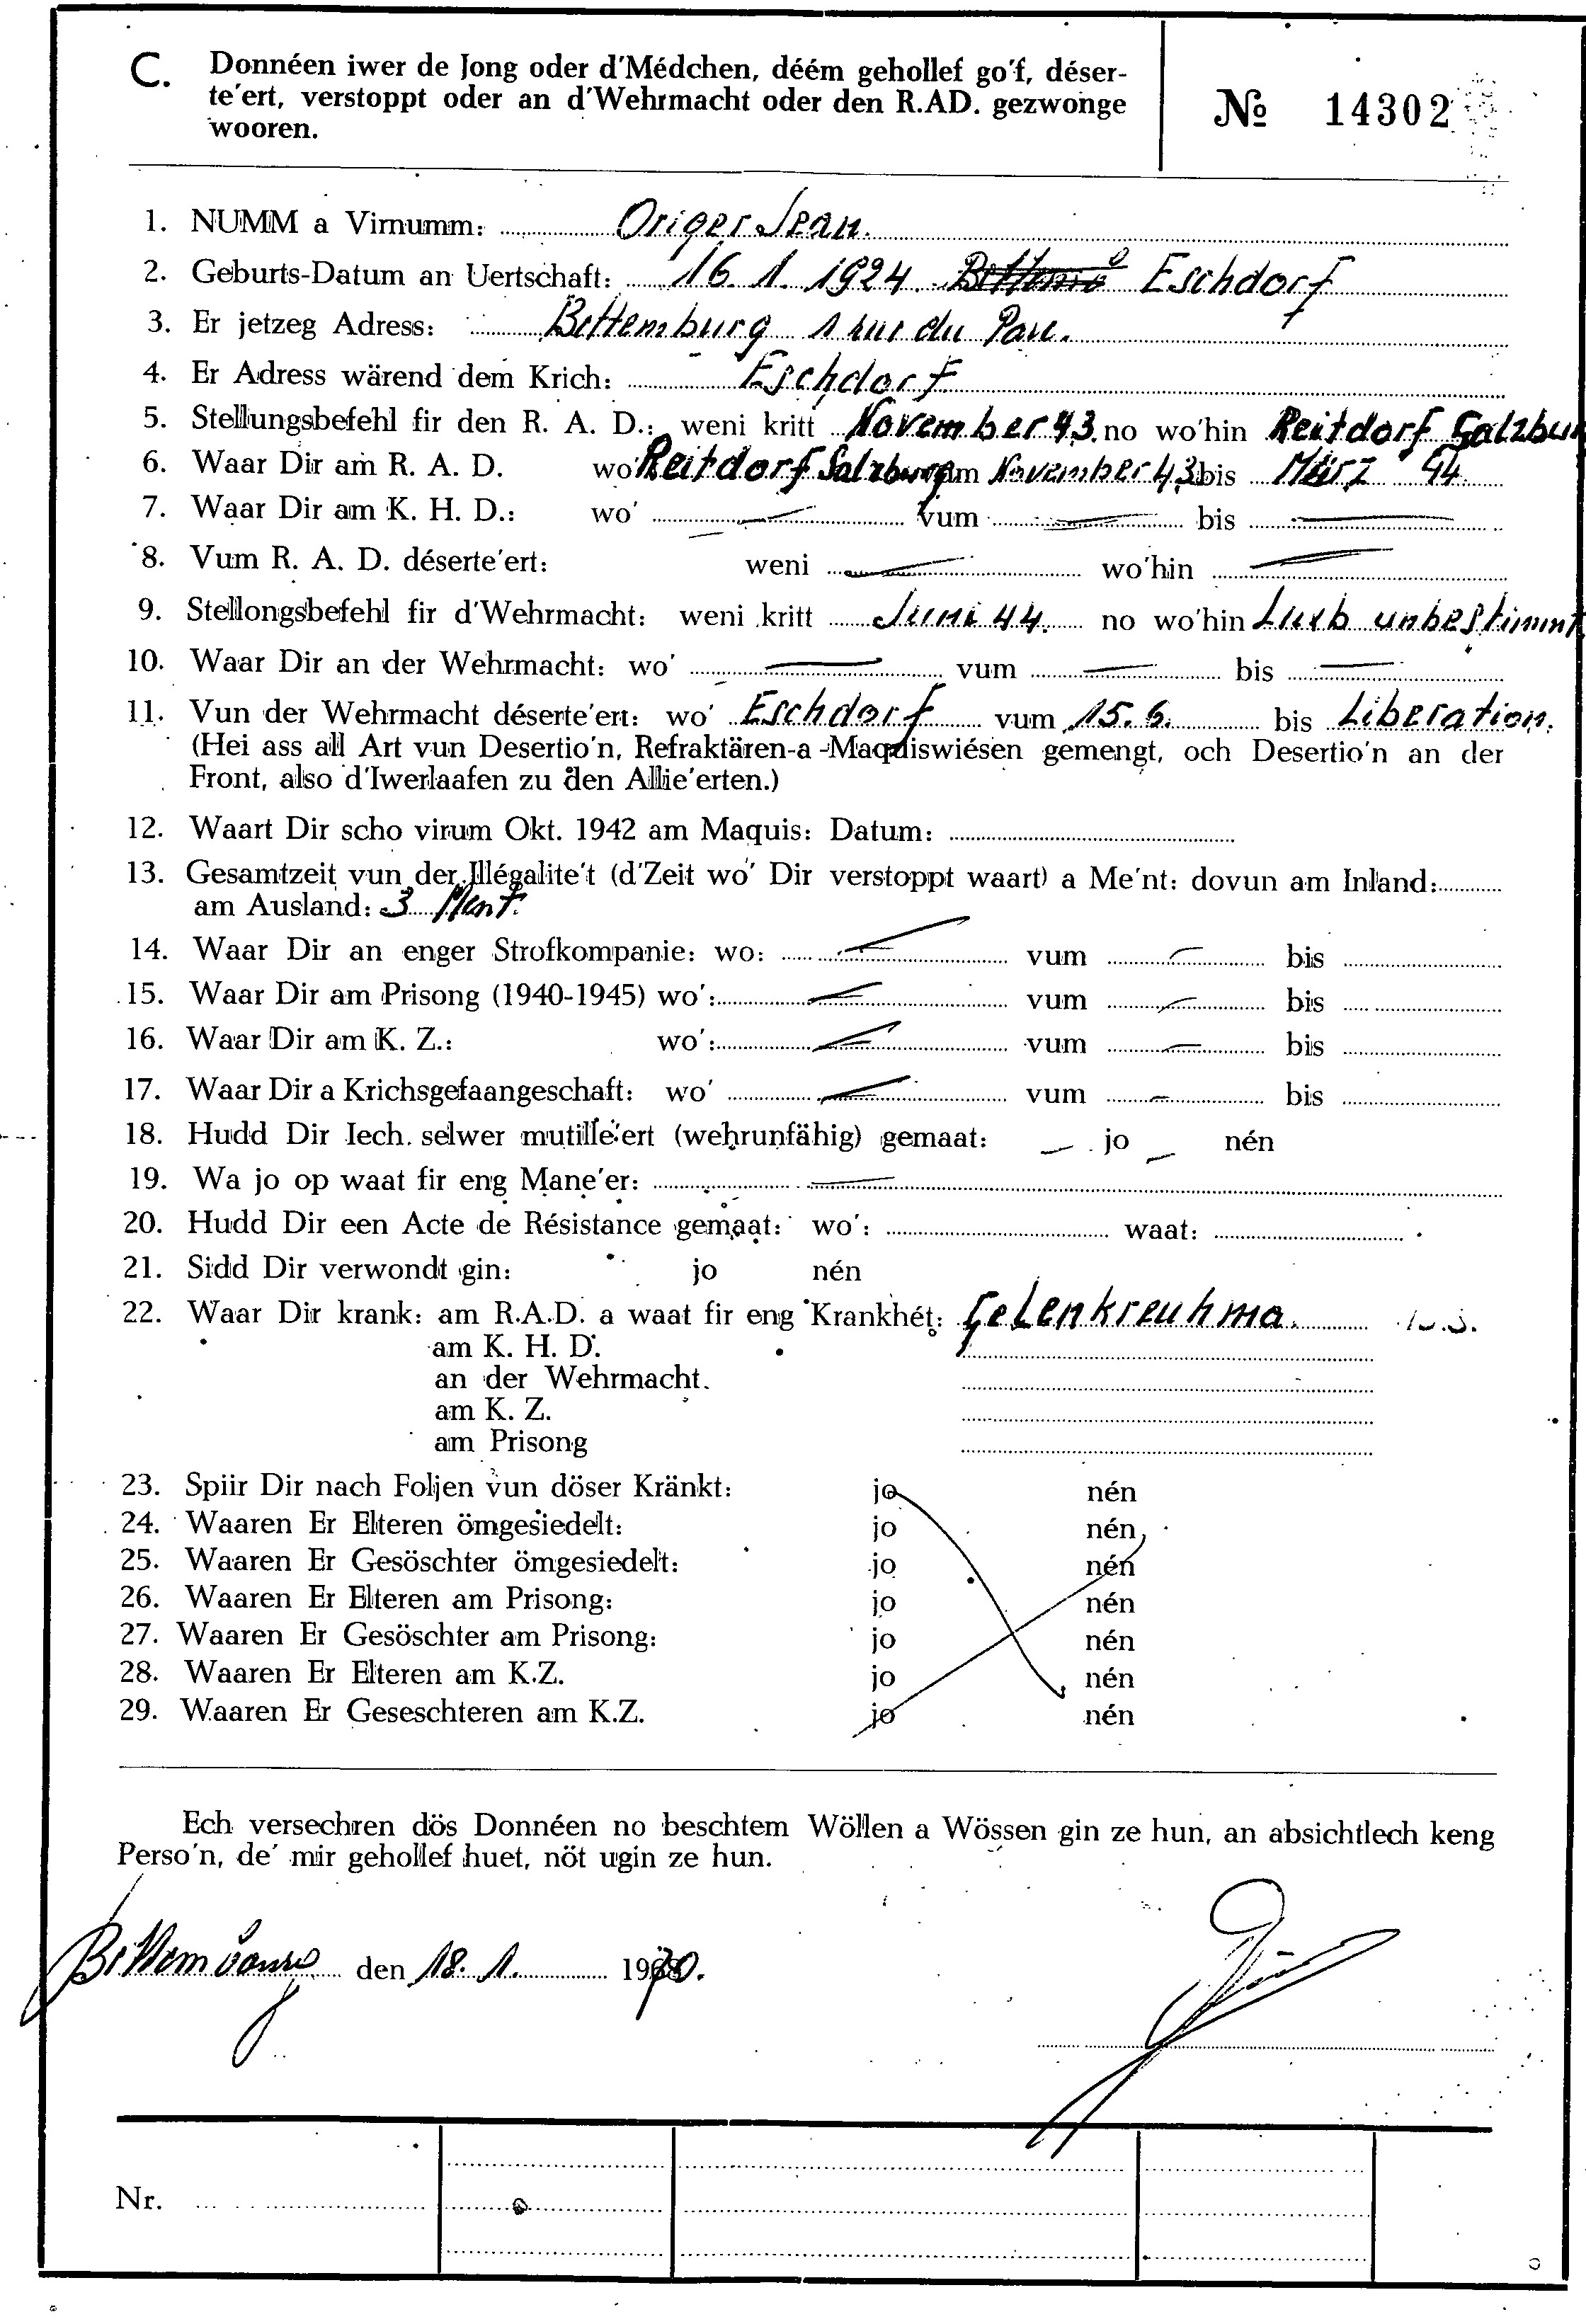 C. Donnéen iwer de Jong oder d'Médchen, déém gehollef go'f, déser-
te'ert, verstoppt oder an d'Wehrmacht oder den R.AD. gezwonge
wooren.
№ 14302
1. NUMM a Virnumm: Origer Jean.
2. Geburts-Datum an Uertschaft: 16. 1. 1924. Eschdorf
3. Er jetzeg Adress: Bettemburg 1 rue du Parc.
4. Er Adress wärend dem Krich: Eschdorf
5. Stellungsbefehl fir den R. A. D.: weni kritt November 43. no wo'hin Reitdorf Salzbur
6. Waar Dir am R. A. D. wo' Reitdorf Salzburg vum November 43 bis März 44
7. Waar Dir am K. H. D.: wo' vum bis
8. Vum R. A. D. déserte'ert: weni wo'hin
9. Stellongsbefehl fir d'Wehrmacht: weni kritt Juni 44. no wo'hin Luxb unbestimmt
10. Waar Dir an der Wehrmacht: wo' vum bis
11. Vun der Wehrmacht déserte'ert: wo' Eschdorf vum 15. 6. bis Liberation.
(Hei ass all Art vun Desertio'n, Refraktären-a-Maquiswiésen gemengt, och Desertio'n an der
Front, also d'Iwerlaafen zu den Allie'erten.)
12. Waart Dir scho virum Okt. 1942 am Maquis: Datum:
13. Gesamtzeit vun der Illégalite't (d'Zeit wo' Dir verstoppt waart) a Me'nt: dovun am Inland:
am Ausland: 3 Ment.
14. Waar Dir an enger Strofkompanie: wo: vum bis
15. Waar Dir am Prisong (1940-1945) wo': vum bis
16. Waar Dir am K. Z.: wo': vum bis
17. Waar Dir a Krichsgefaangeschaft: wo' vum bis
18. Hudd Dir Iech. selwer mutille'ert (wehrunfähig) gemaat: jo nén
19. Wa jo op waat fir eng Mane'er:
20. Hudd Dir een Acte de Résistance gemaat: wo': waat:
21. Sidd Dir verwondt gin: jo nén
22. Waar Dir krank: am R.A.D. a waat fir eng Krankhét: Gelenkreuhma.
am K. H. D.
an der Wehrmacht.
am K. Z.
am Prisong
23. Spiir Dir nach Foljen vun döser Kränkt: jo nén
24. Waaren Er Elteren ömgesiedelt: jo nén
25. Waaren Er Gesöschter ömgesiedelt: jo nén
26. Waaren Er Elteren am Prisong: jo nén
27. Waaren Er Gesöschter am Prisong: jo nén
28. Waaren Er Elteren am K.Z. jo nén
29. Waaren Er Geseschteren am K.Z. jo nén
Ech versechren dös Donnéen no beschtem Wöllen a Wössen gin ze hun, an absichtlech keng
Perso'n, de' mir gehollef huet, nöt ugin ze hun.
den 18. 1. 1970.
Nr.